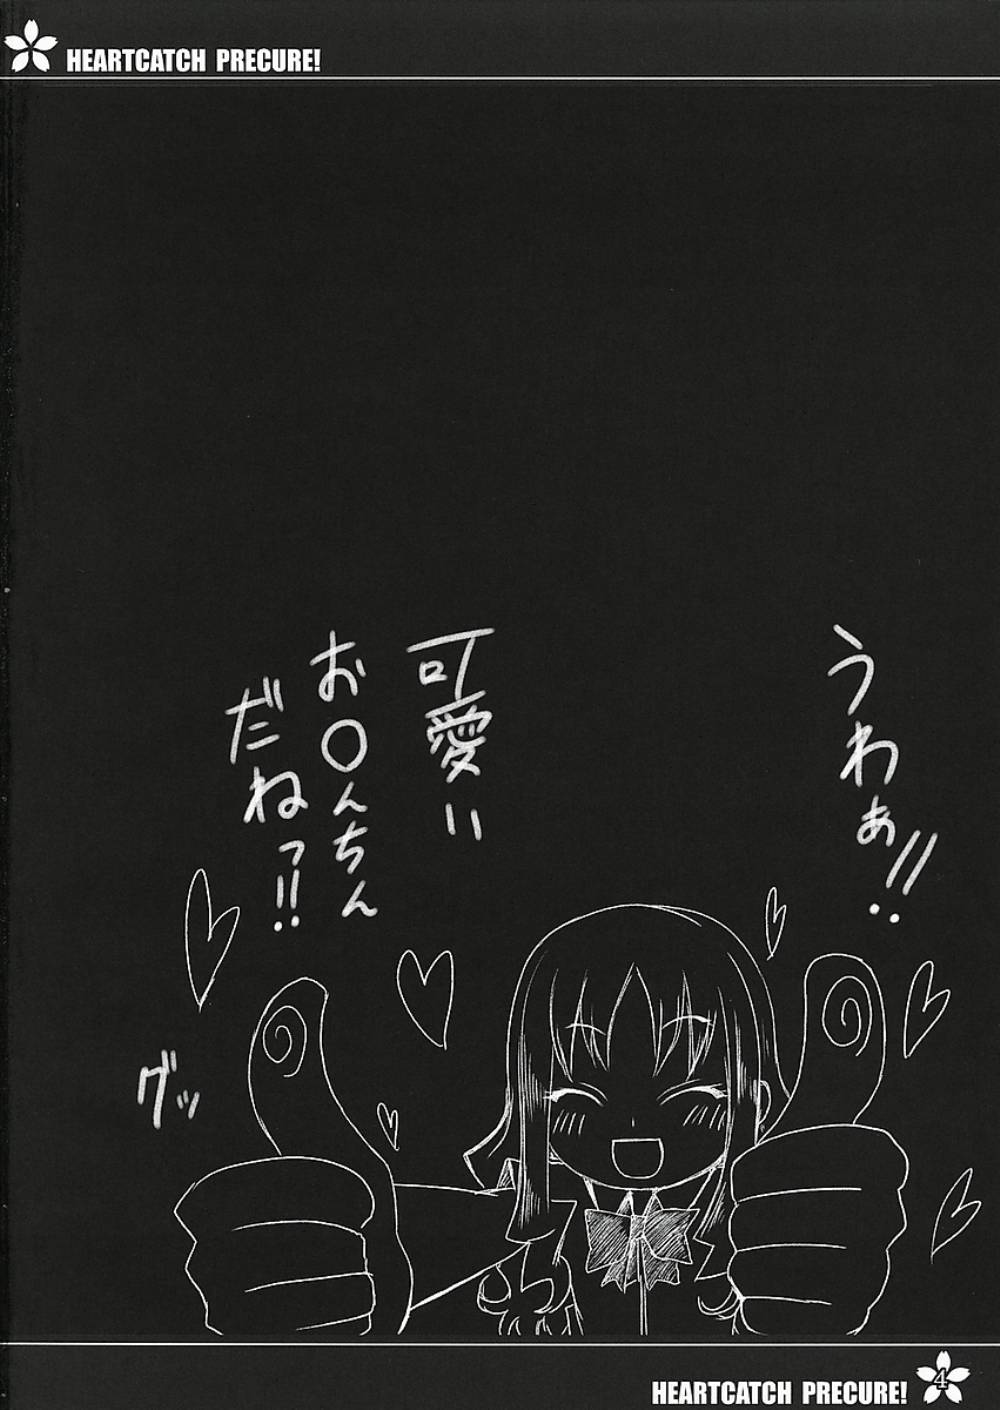 HEARTCATCH PRECURE!
うわぁ!!
可愛い
お〇んちん
だねっ!!
グッ
HEARTCATCH PRECURE!
4